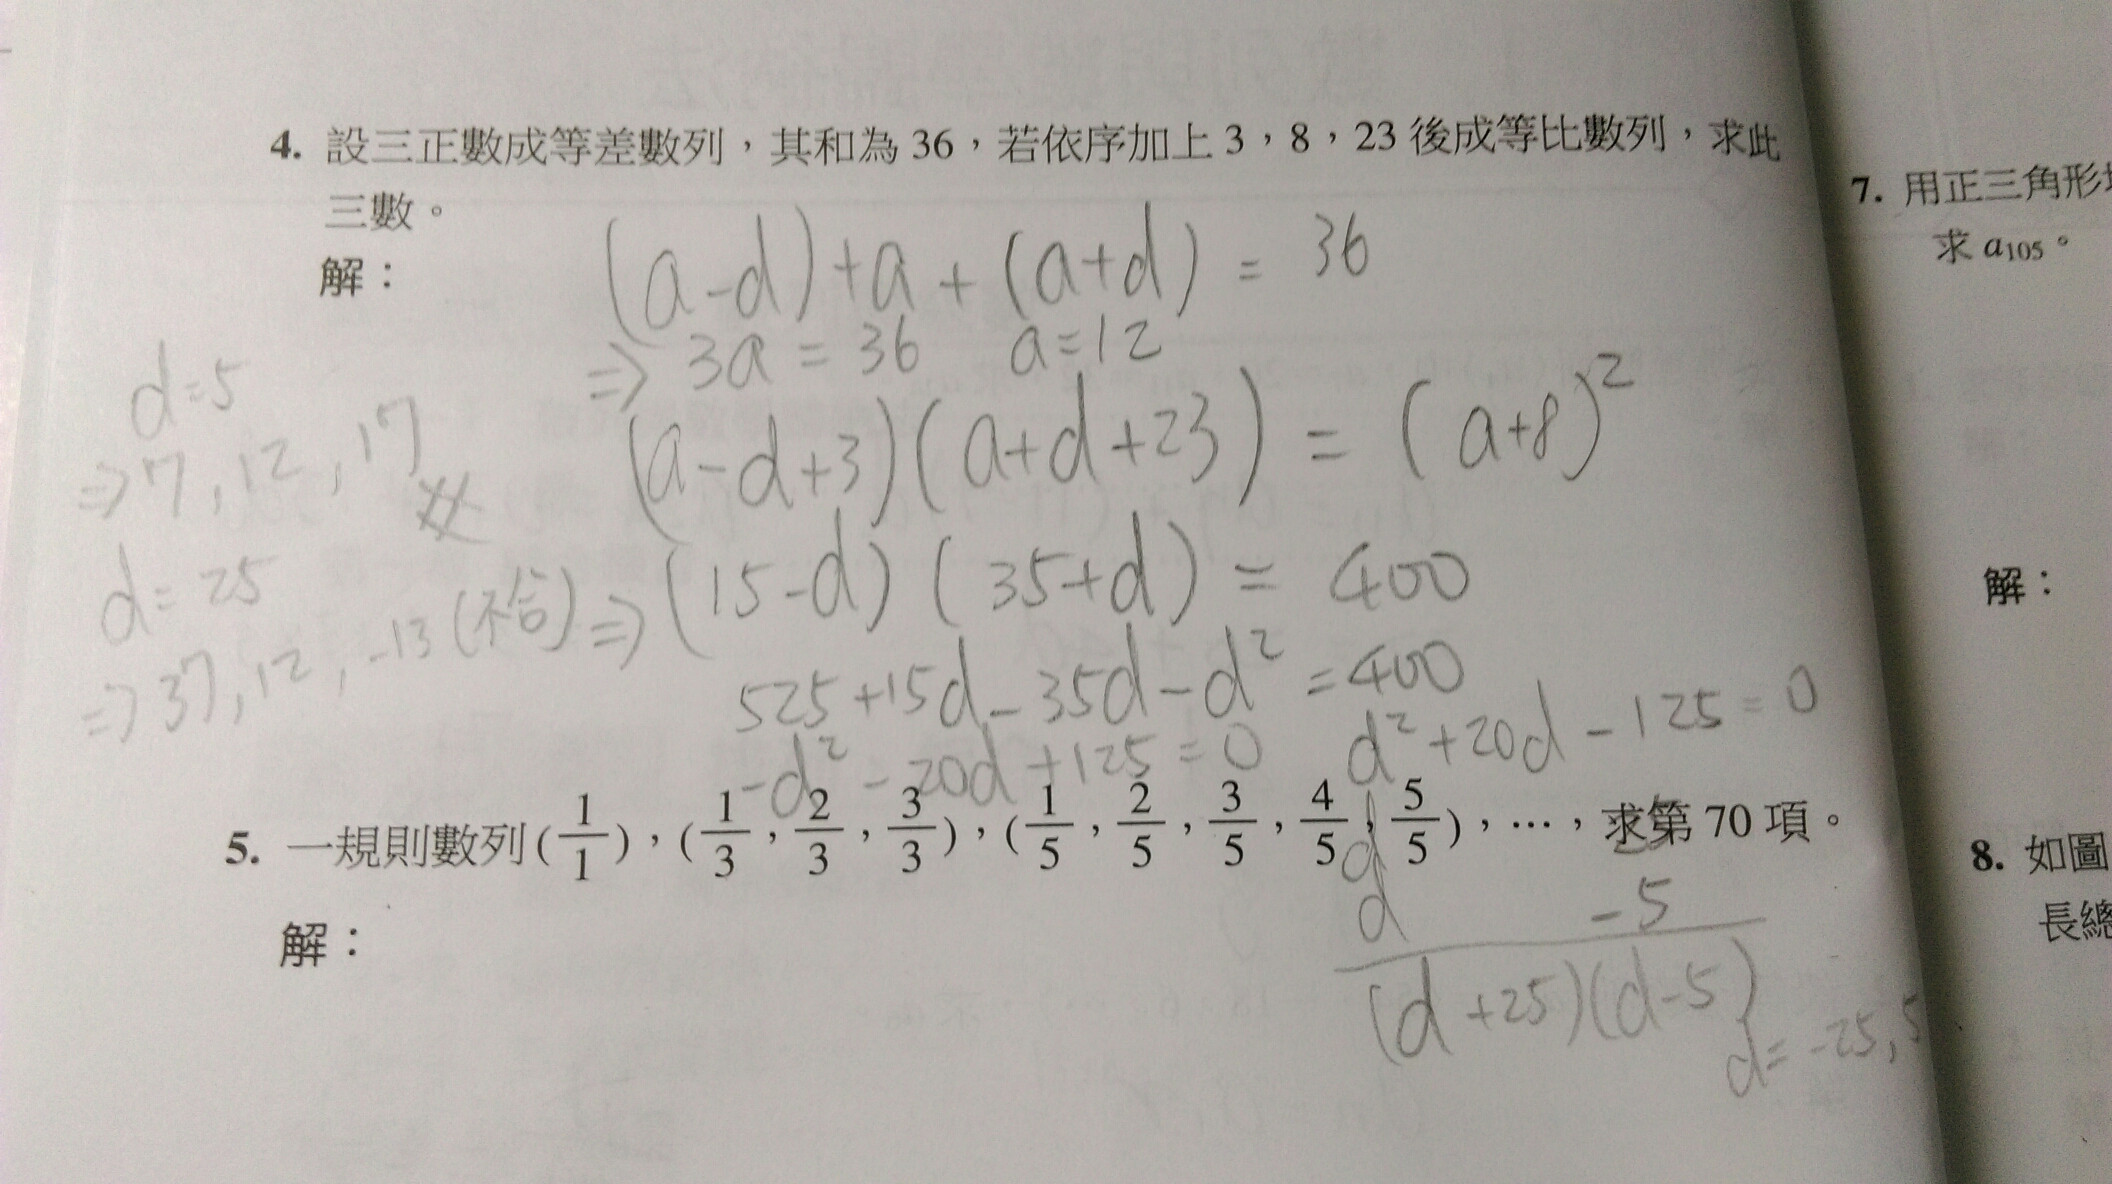 4. 設三正數成等差數列，其和為 36，若依序加上 3，8，23 後成等比數列，求此
三數。
解：
(a-d)+a+(a+d) = 36
⇒ 3a = 36 a=12
(a-d+3)(a+d+23) = (a+8)²
⇒ (15-d)(35+d) = 400
525+15d-35d-d² =400
-d²-20d+125=0 d²+20d-125=0
d -5
(d+25)(d-5)
d=-25,5
d=5
⇒7,12,17
d=25
⇒37,12,-13(不合)
5. 一規則數列(1/1)，(1/3，2/3，3/3)，(1/5，2/5，3/5，4/5，5/5)，…，求第 70 項。
解：
7. 用正三角形
求 a₁₀₅。
解：
8. 如圖
長總